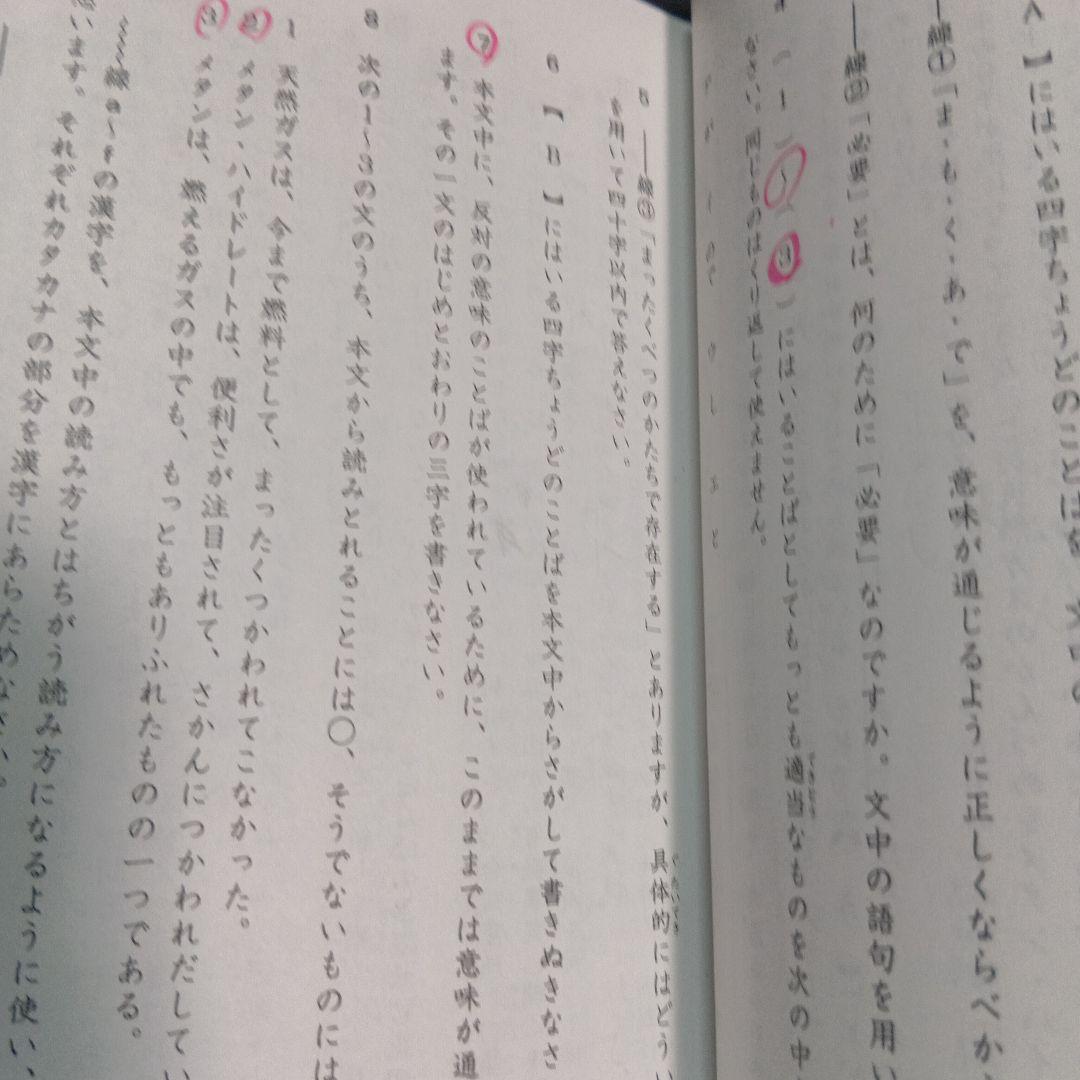 A 】にはいる四字ちょうどのことばを、文中の
――線①「ま・も・く・あ・で」を、意味が通じるように正しくならべか
――線②「必要」とは、何のために「必要」なのですか。文中の語句を用い
（ 1 ）～（ 3 ）にはいることばとしてもっとも適当なものを次の中
なさい。同じものはくり返して使えません。
5 ――線③「まったくべつのかたちで存在する」とありますが、具体的にはどうい
を用いて四十字以内で答えなさい。
6 【 B 】にはいる四字ちょうどのことばを本文中からさがして書きぬきなさ
⑦ 本文中に、反対の意味のことばが使われているために、このままでは意味が通
ます。その一文のはじめとおわりの三字を書きなさい。
8 次の1～3の文のうち、本文から読みとれることには〇、そうでないものには
1 天然ガスは、今まで燃料として、まったくつかわれてこなかった。
② メタン・ハイドレートは、便利さが注目されて、さかんにつかわれだしてい
③ メタンは、燃えるガスの中でも、もっともありふれたものの一つである。
～～線a～fの漢字を、本文中の読み方とはちがう読み方になるように使い、
思います。それぞれカタカナの部分を漢字にあらためなさい。